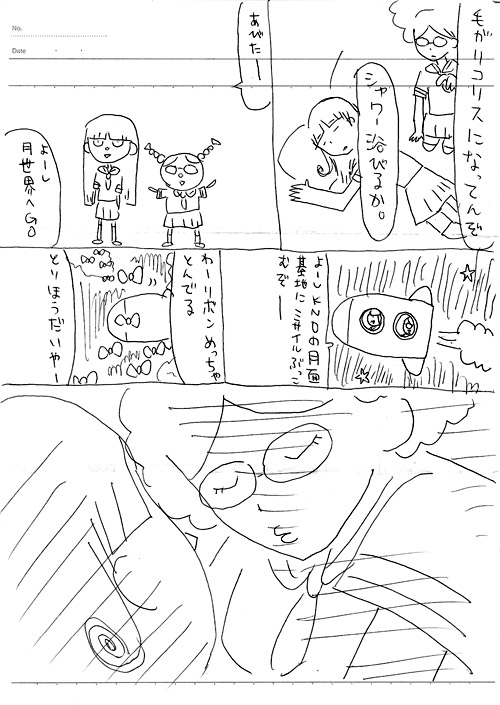 No.
Date
毛がリコリスになってんぞ
シャワー浴びるか。
あびたー
よーし
月世界へGO
よーしKNDの月面
基地にミサイルぶっこ
むぞー
わーリボンめっちゃ
とんでる
とりほうだいやー